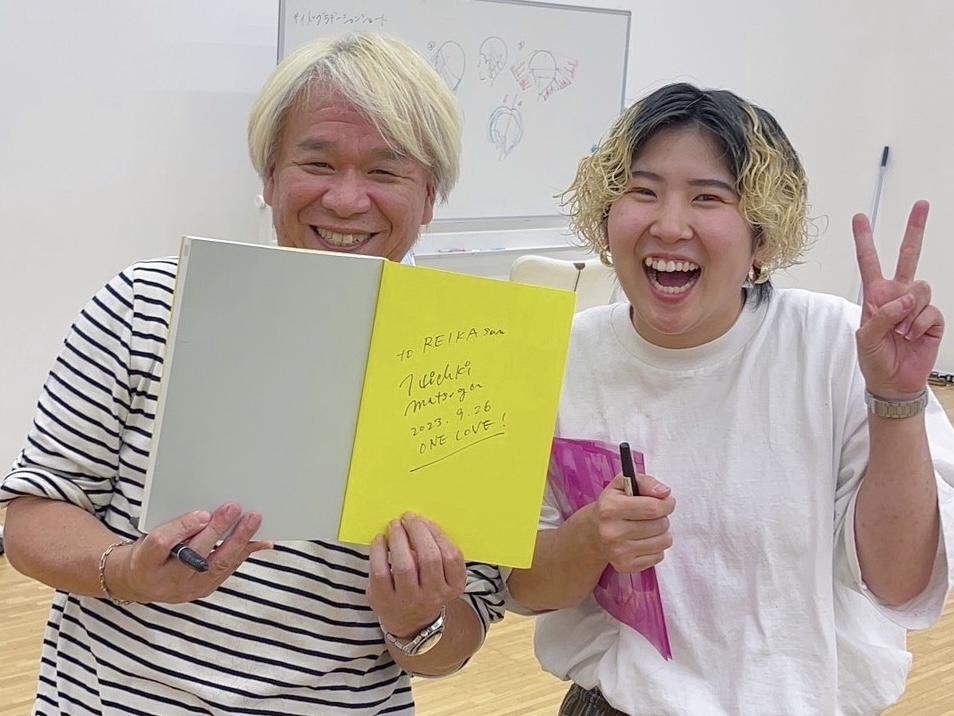 サイドグラデーションショート
to REIKA san
2023.9.26
ONE LOVE!